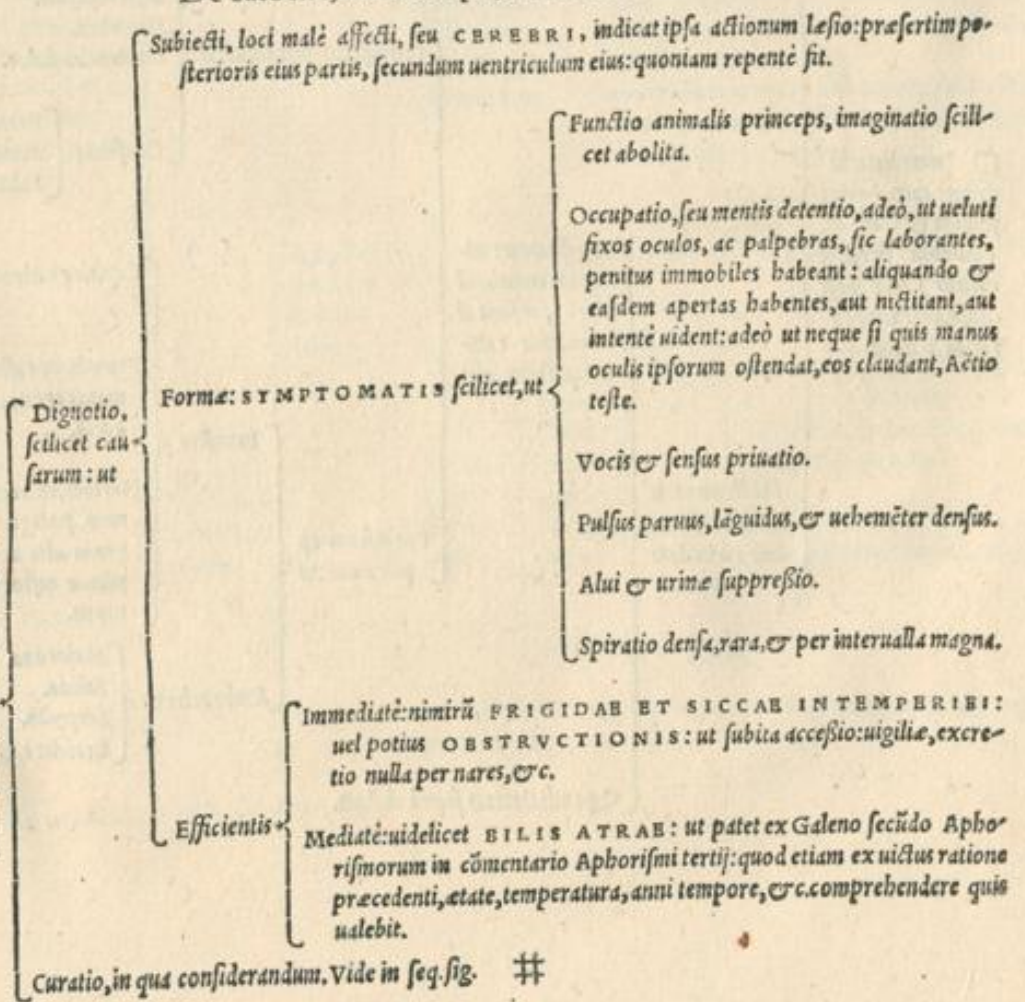 Subiecti, loci malè affecti, seu CEREBRI, indicat ipsa actionum læsio: præsertim po-
sterioris eius partis, secundum uentriculum eius: quoniam repentè fit.
Functio animalis princeps, imaginatio scili-
cet abolita.
Occupatio, seu mentis detentio, adeò, ut ueluti
fixos oculos, ac palpebras, sic laborantes,
penitus immobiles habeant: aliquando &
easdem apertas habentes, aut nictitant, aut
intentè uident: adeò ut neque si quis manus
oculis ipsorum ostendat, eos claudant, Aëtio
teste.
Formæ: SYMPTOMATIS scilicet, ut
Dignotio,
scilicet cau
sarum: ut
Vocis & sensus priuatio.
Pulsus paruus, lãguidus, & uehemẽter densus.
Alui & urinæ suppreßio.
Spiratio densa, rara, & per interualla magna.
Immediatè: nimirũ FRIGIDAE ET SICCAE INTEMPERIEI:
uel potius OBSTRVCTIONIS: ut subita acceßio: uigiliæ, excre-
tio nulla per nares, &c.
Efficientis
Mediatè: uidelicet BILIS ATRAE: ut patet ex Galeno secũdo Apho-
rismorum in cõmentario Aphorismi tertij: quod etiam ex uictus ratione
præcedenti, ætate, temperatura, anni tempore, &c. comprehendere quis
ualebit.
Curatio, in qua considerandum. Vide in seq. fig. ⌗